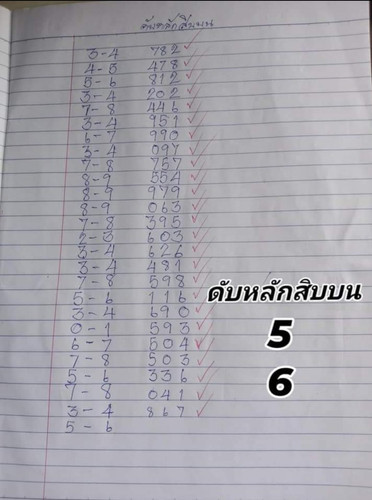 ดับหลักสิบบน
3-4 782 ✓
4-5 478 ✓
5-6 812 ✓
3-4 202 ✓
7-8 446 ✓
3-4 951 ✓
6-7 990 ✓
3-4 097 ✓
7-8 757 ✓
8-9 554 ✓
8-9 979 ✓
8-9 063 ✓
7-8 395 ✓
2-3 603 ✓
3-4 626 ✓
3-4 481 ✓
7-8 598 ✓
5-6 116 ✓
3-4 690 ✓
0-1 593 ✓
6-7 504 ✓
7-8 503 ✓
5-6 336 ✓
7-8 041 ✓
3-4 867 ✓
5-6
ดับหลักสิบบน
5
6